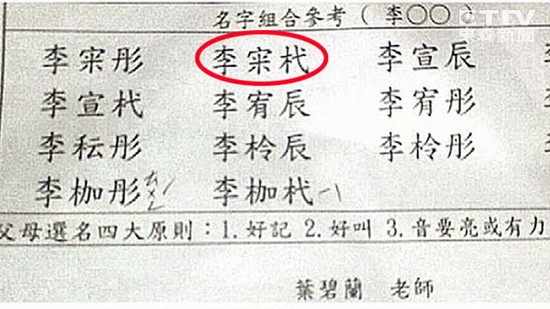 名字組合參考(李○○)
李寀彤 李寀杙 李宣辰
李宣杙 李宥辰 李宥彤
李耘彤 李柃辰 李柃彤
李枷彤 李枷杙
父母選名四大原則:1.好記 2.好叫 3.音要亮或有力
葉碧蘭 老師